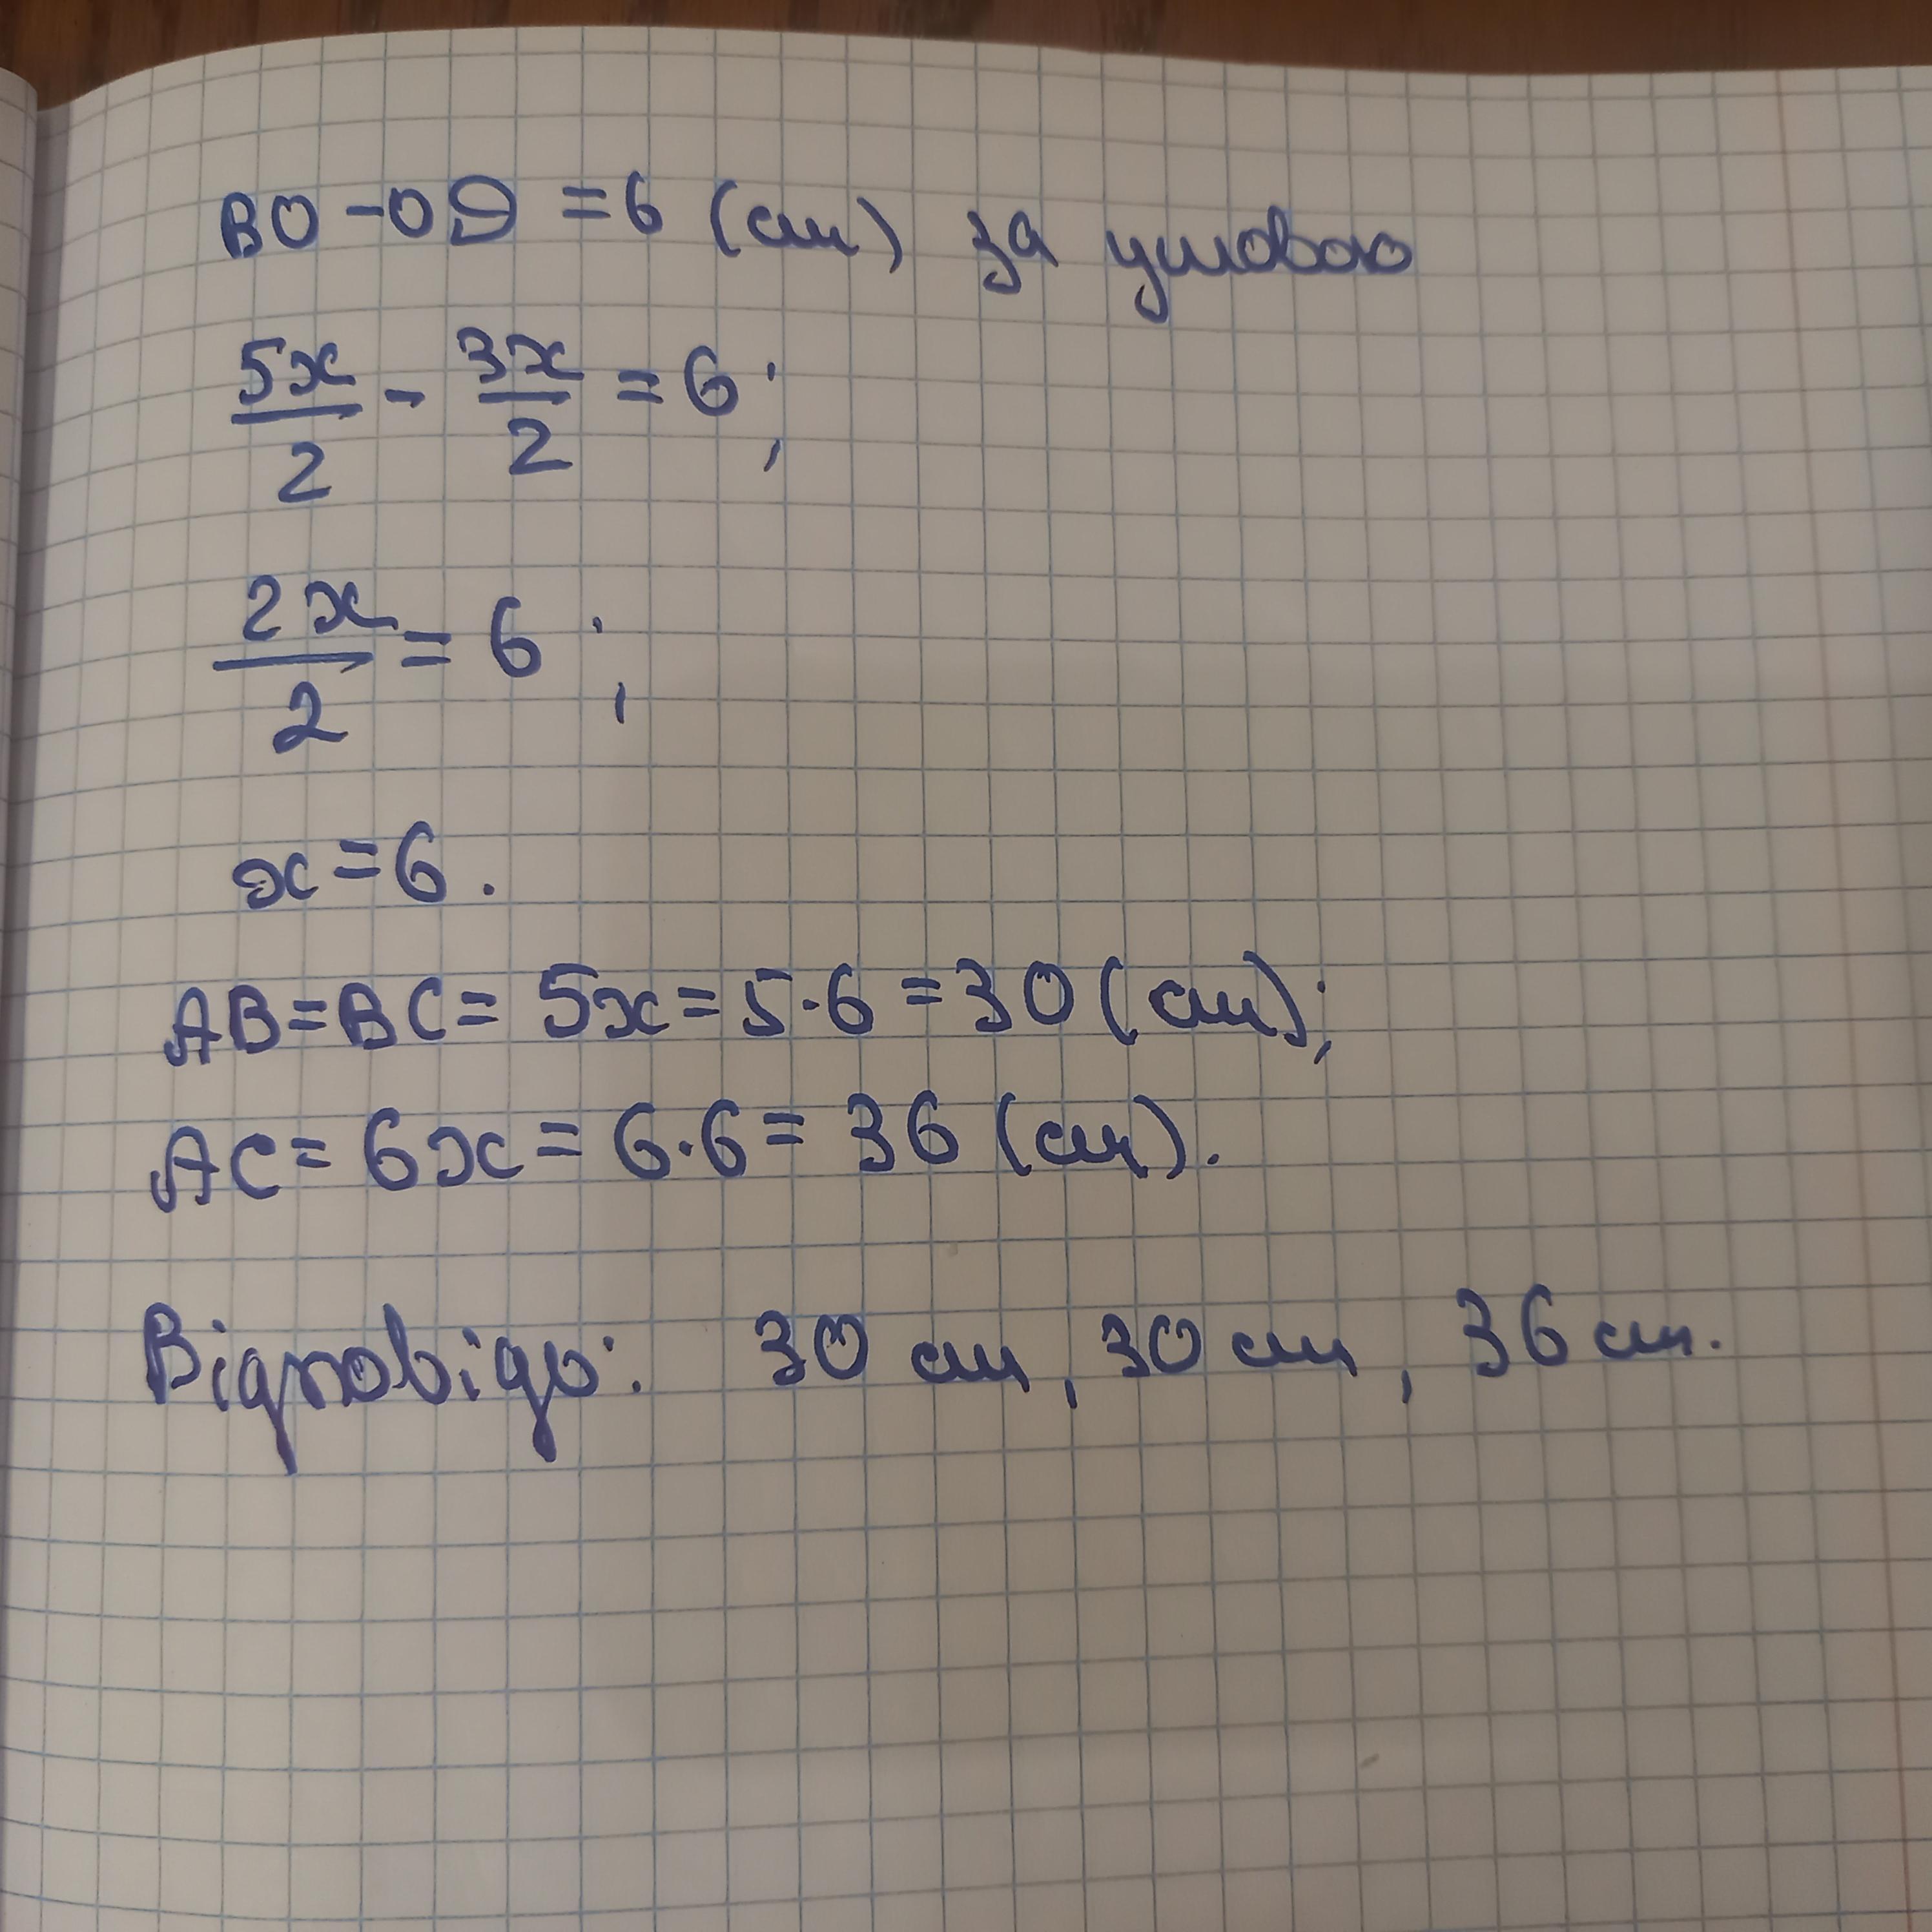 BO - OD = 6 (см) за умовою
5x/2 - 3x/2 = 6;
2x/2 = 6;
x = 6.
AB = BC = 5x = 5·6 = 30 (см);
AC = 6x = 6·6 = 36 (см).
Відповідь: 30 см, 30 см, 36 см.